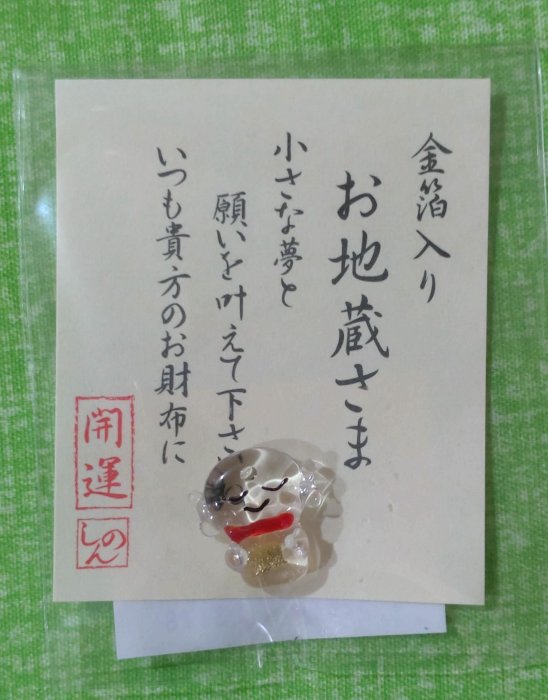 金箔入り
お地蔵さま
小さな夢と
願いを叶えて下さ
いつも貴方のお財布に
開運
しのん